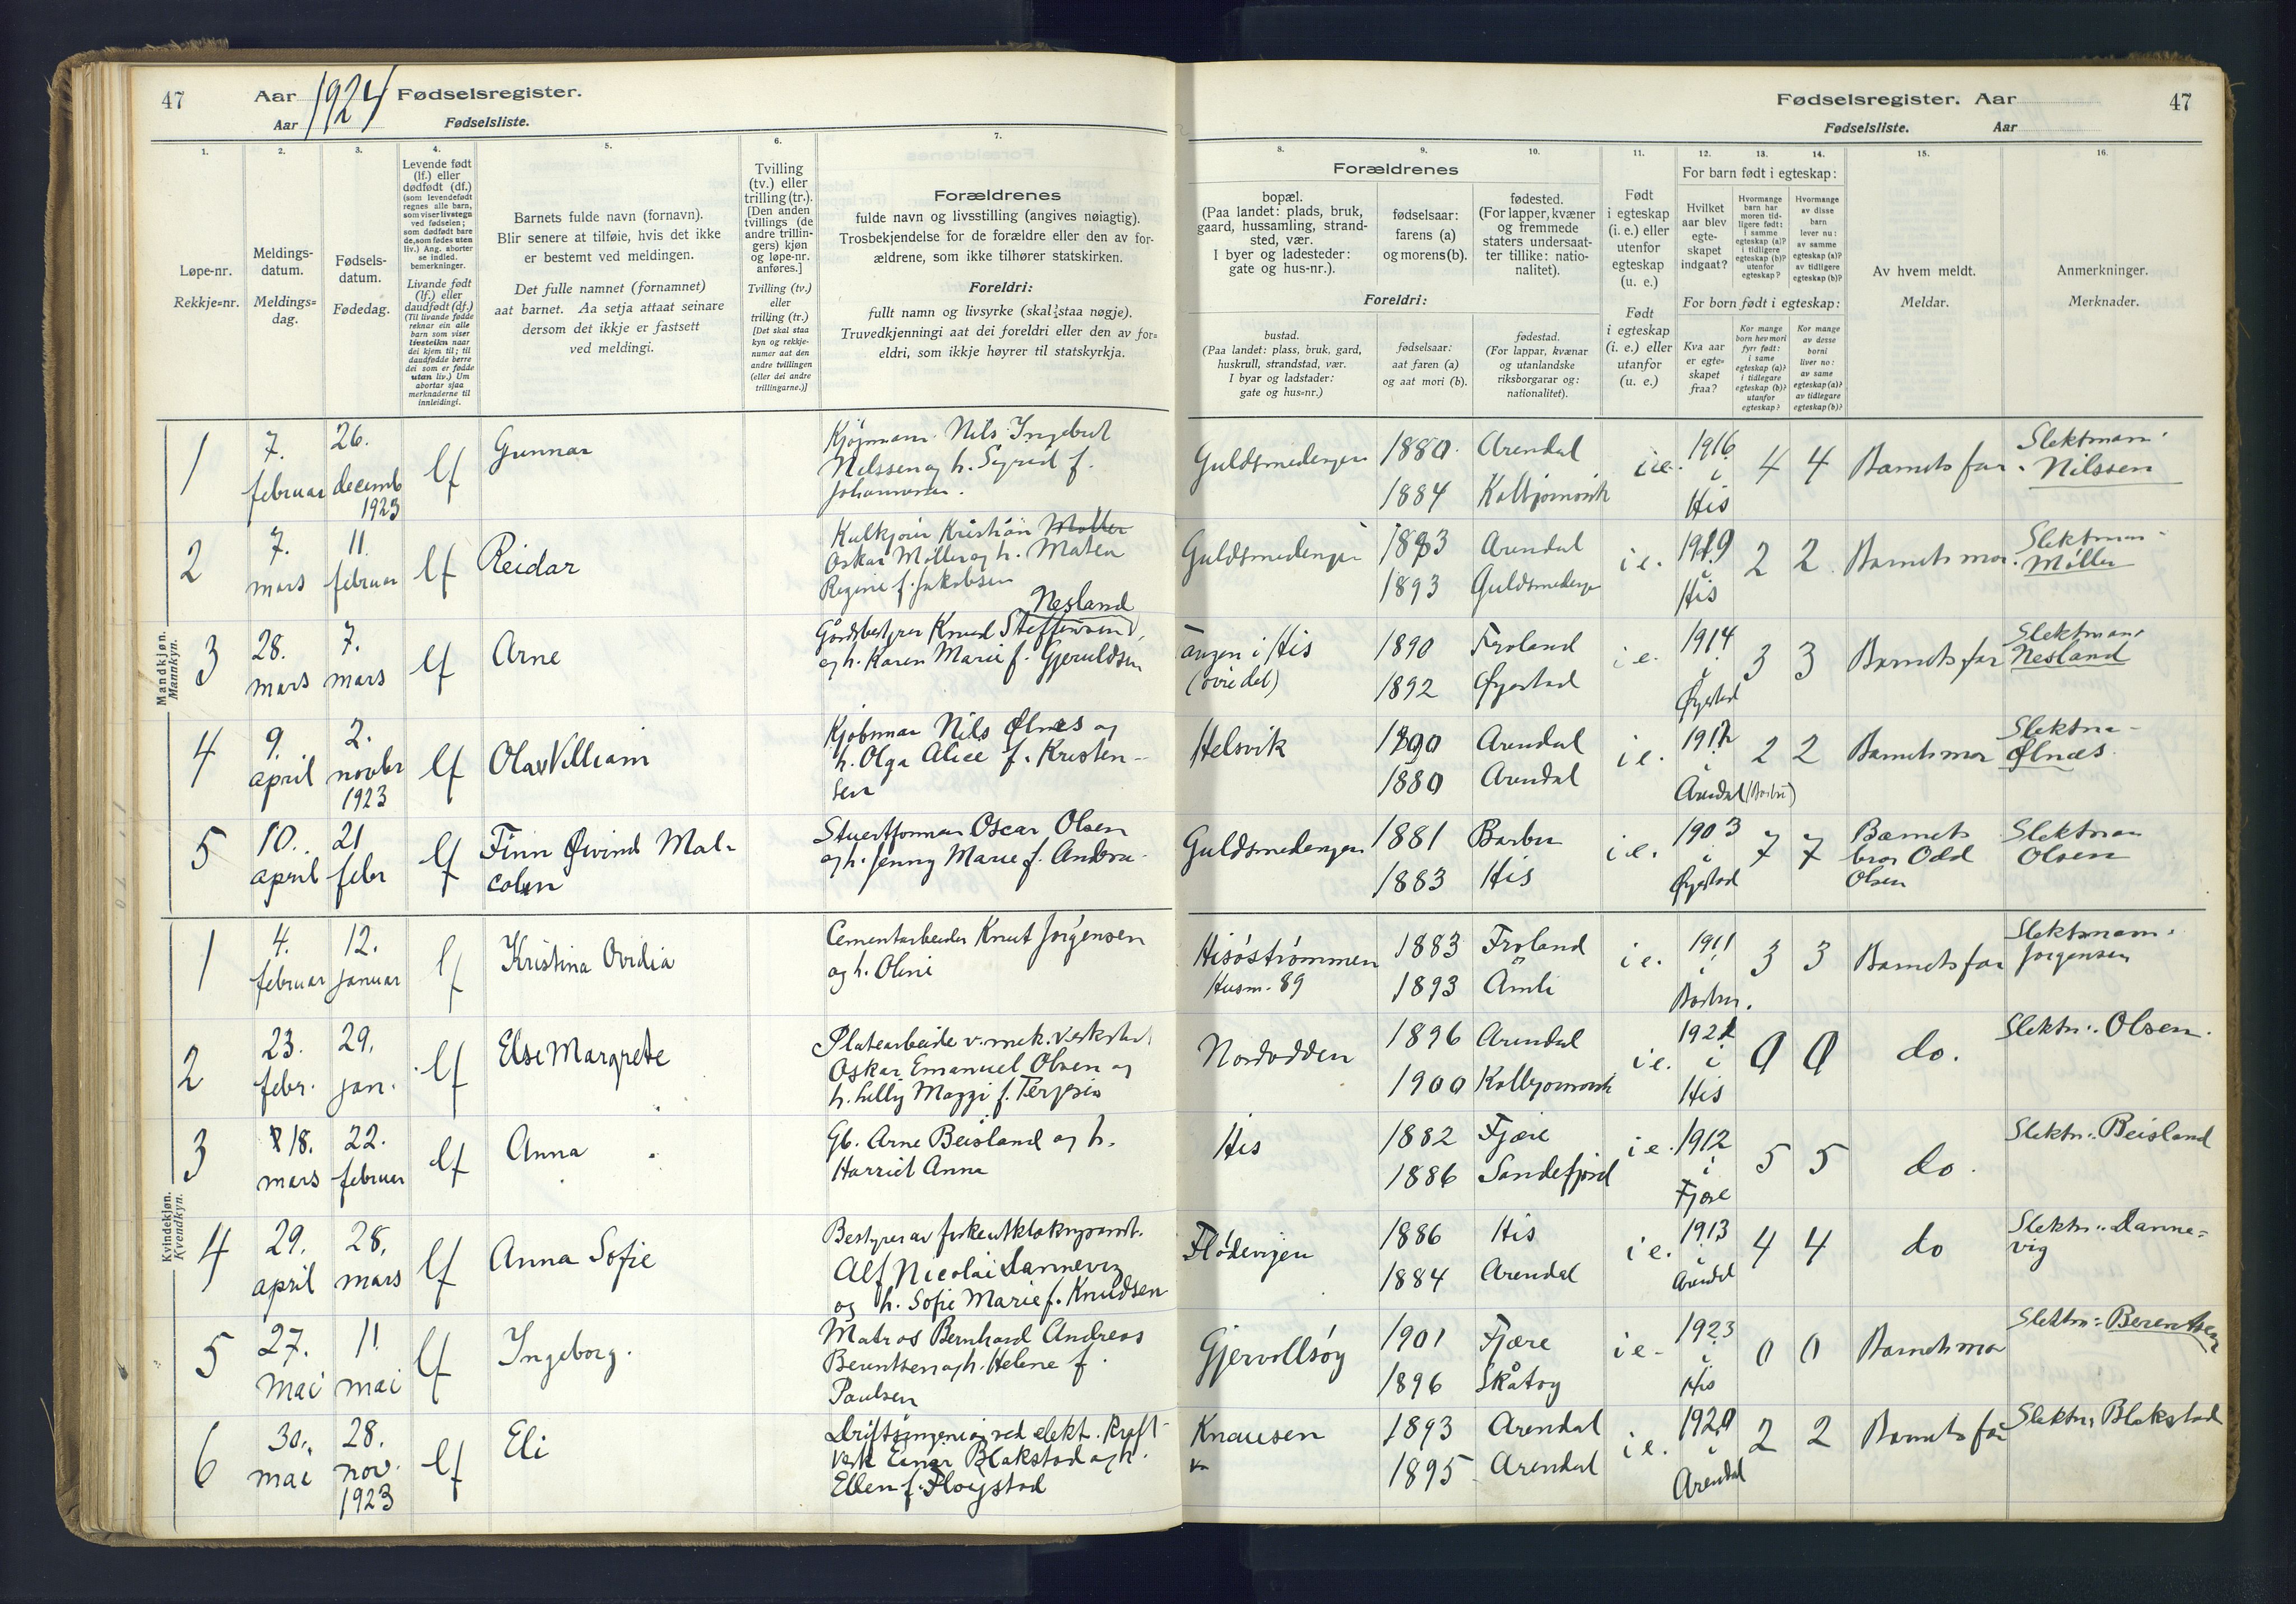 47
Aar 1924 Fødselsregister.
Aar Fødselsliste.
1.
2.
3.
4.
5.
6.
7.
Løpe-nr.
Rekkje=nr.
Meldings-
datum.
Meldings=
dag.
Fødsels-
datum.
Fødedag.
Levende født
(lf.) eller
dødfødt (df.)
(som levendefødt
regnes alle barn,
som viser livstegn
ved fødselen;
som dødfødt bare
de, som fødes uten
liv.) Ang. aborter
se indled.
bemerkninger.
Livande født
(lf.) eller
daudfødt (df.)
(Til livande fødde
reknar ein alle
barn som viser
livsteikn naar
dei kjem til; til
daudfødde berre
dei som er fødde
utan liv.) Um
abortar sjaa
merknaderne til
innleidingi.
Barnets fulde navn (fornavn).
Blir senere at tilføie, hvis det ikke
er bestemt ved meldingen.
Det fulle namnet (fornamnet)
aat barnet. Aa setja attaat seinare
dersom det ikkje er fastsett
ved meldingi.
Tvilling
(tv.) eller
trilling (tr.).
[Den anden
tvillings (de
andre trillin-
gers) kjøn
og løpe-nr.
anføres.]
Tvilling (tv.)
eller
trilling (tr.)
[Det skal staa
kyn og rekkje-
numer aat den
andre tvillingen
(eller dei andre
trillingarne.)]
Forældrenes
fulde navn og livsstilling (angives nøiagtig).
Trosbekjendelse for de forældre eller den av for-
ældrene, som ikke tilhører statskirken.
Foreldri:
fullt namn og livsyrke (skal staa nøgje).
Truvedkjenningi aat dei foreldri eller den av for=
eldri, som ikkje høyrer til statskyrkja.
Mandkjøn.
Mannkyn.
1
7.
februar
26.
decemb
1923
lf
Gunnar
Kjøpmann Nils Ingebret
Nilssen og h. Sigrid f.
Johannesen.
2
7.
mars
11.
februar
lf
Reidar
Kulkjører Kristian Møller
Oskar Møller og h. Matea
Regine f. Jakobsen
3
28.
mars
7.
mars
lf
Arne
Nesland
Gårdsbestyrer Knud Steffensen,
og h. Karen Marie f. Gjeruldsen
4
9.
april
2.
novbr
1923
lf
Olav Villiam
Kjøbman Nils Ølnes og
h. Olga Alice f. Kristen-
sen
5
10.
april
21
febr
lf
Finn Øivind Mal-
colm
Stuertforman Oscar Olsen
og h. Jenny Marie f.
Kvindekjøn.
Kvendkyn.
1
4.
februar
12.
januar
lf
Kristina Ovidia
Cementarbeider Knut Jørgensen
og h. Oline
2
23.
febr.
29.
jan.
lf
Else Margrete
Platearbeide v. mek. verksted
Oskar Emanuel Olsen og
h. Lilly Maggi f. Terjesen
3
18.
mars
22.
februar
lf
Anna
Gb. Arne Beisland og h.
Harriet Anna
4
29.
april
28.
mars
lf
Anna Sofie
Bestyrer av
Alf Nicolai Dannevig
og h. Sofie Marie f. Knudsen
5
27.
mai
11
mai
lf
Ingeborg.
Matros Bernhard Andreas
Berentsen og h. Helene f.
Paulsen
6
30.
mai
28.
nov.
1923
lf
Eli
Driftsingeniør ved elekt. Kraft-
verk Einar Blakstad og h.
Ellen f. Fløystad
Fødselsregister. Aar 47
Fødselsliste. Aar
8.
9.
10.
11.
12.
13.
14.
15.
16.
Forældrenes
bopæl.
(Paa landet: plads, bruk,
gaard, hussamling, strand-
sted, vær.
I byer og ladesteder:
gate og hus-nr.).
fødselsaar:
farens (a)
og morens (b).
fødested.
(For lapper, kvæner
og fremmede
staters undersaat-
ter tillike: natio-
nalitet).
Foreldri:
bustad.
(Paa landet: plass, bruk, gard,
huskrull, strandstad, vær.
I byar og ladstader:
gate og hus=nr.)
fødselsaar:
aat faren (a)
og aat mori (b).
fødestad.
(For lappar, kvænar
og utanlandske
riksborgarar og:
nationalitet).
Født
i egteskap
(i. e.) eller
utenfor
egteskap
(u. e.)
Født
i egteskap
(i. e.) eller
utanfor
(u. e.)
For barn født i egteskap:
Hvilket
aar blev
egte-
skapet
indgaat?
Hvormange
barn har
moren tid-
ligere født:
i samme
egteskap (a)?
i tidligere
egteskap (b)?
utenfor
egteskap?
Hvormange
av disse
barn
lever nu:
av samme
egteskap (a)?
av tidligere
egteskap (b)?
For born født i egteskap:
Kva aar
er egte=
skapet
fraa?
Kor mange
born hev mori
fyrr født:
i same
egteskap (a)?
i tidlegare
egteskap (b)?
utanfor
egteskap?
Kor mange
av desse
borni
liver no:
av same
egteskap (a)?
av tidlegare
egteskap (b)?
Av hvem meldt.
Meldar.
Anmerkninger.
Merknader.
Guldsmedengen
1880.
1884
Arendal
Kolbjørnsvik
i.e.
1916
i
His
4
4
Barnets far
Slektnavn:
Nilssen
Guldsmedengen
1883
1893
Arendal
Guldsmedengen
i e.
1919
i
His
2
2
Barnets mor.
Slektnavn
Møller
Tangen i His
(øvre del)
1890
1892
Froland
Øyestad
i e.
1914
i
Øyestad
3
3
Barnets far
Slektnavn
Nesland
Helsvik
1890
1880
Arendal
Arendal
i e.
i
Arendal (Barbu)
2
2
Barnets mor
Slektna-
Ølnæs
Guldsmedengen
1881
1883
Barbu
His
i e.
1903
i
Øyestad
7
7
Barnets
bror Odd
Olsen
Slektnavn
Olsen
Hisøstrømmen
Husnr. 89
1883
1893
Froland
Åmli
i e.
1911
i
Barbu.
3
3
Barnets far
Slektsnavn:
Jørgensen
Nordodden
1896
1900
Arendal
Kolbjørnsvik
i e.
i
His
0
0
do.
Slektn: Olsen.
His
1882
1886
Fjære
Sandefjord
i e.
1912
i
Fjære
5
5
do.
Slektn: Beisland
Flødevigen
1886
1884
His
Arendal
i e.
1913
i
Arendal
4
4
do
Slektn: Danne=
vig
Gjervollsøy
1901
1896
Fjære
Skåtøy
i e.
1923
i
His
0
0
Barnets mor
Slektn: Berentsen
Knausen
1893
1895
Arendal
Arendal
i e.
1920
i
Arendal
2
2
Barnets far
Slektn: Blakstad